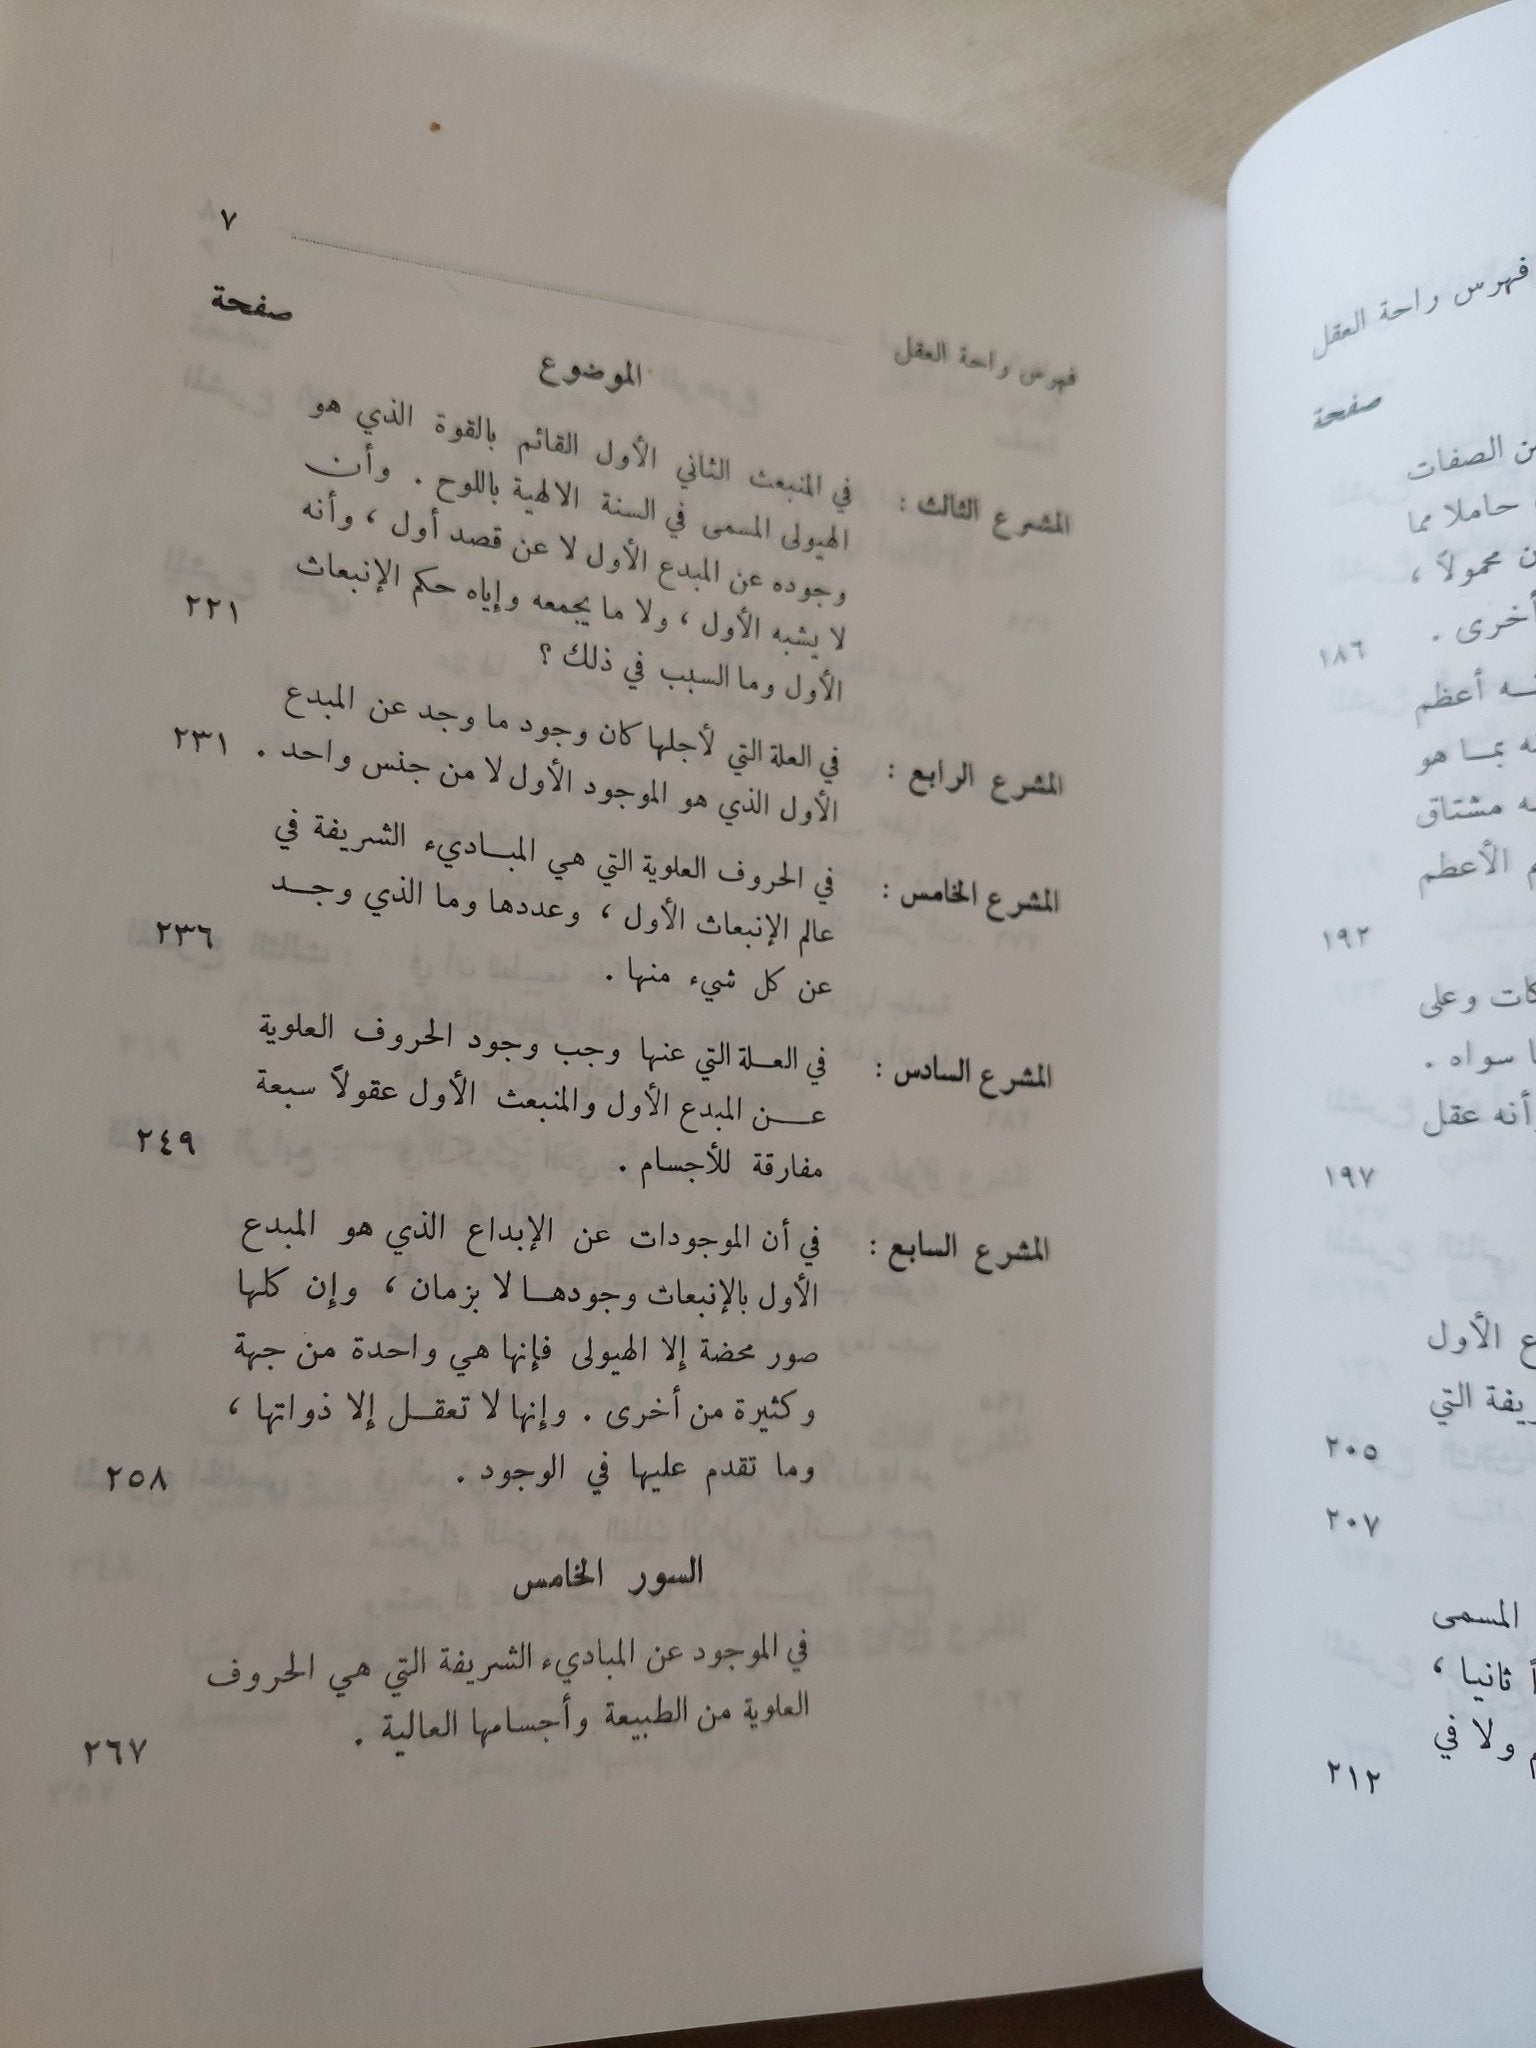 فهرس راحة العقل ٧
الموضوع صفحة
المشرع الثالث : في المنبعث الثاني الأول القائم بالقوة الذي هو
الهيولى المسمى في السنة الالهية باللوح . وأن
وجوده عن المبدع الأول لا عن قصد أول ، وأنه
لا يشبه الأول ، ولا ما يجمعه وإياه حكم الإنبعاث
الأول وما السبب في ذلك ؟ ٢٢١
المشرع الرابع : في العلة التي لأجلها كان وجود ما وجد عن المبدع
الأول الذي هو الموجود الأول لا من جنس واحد . ٢٣١
المشرع الخامس : في الحروف العلوية التي هي المبـاديء الشريفة في
عالم الإنبعاث الأول ، وعددها وما الذي وجـد
عن كل شيء منها . ٢٣٦
المشرع السادس : في العلـة التي عنها وجب وجود الحروف العلوية
عـن المبدع الأول والمنبعث الأول عقولاً سبعة
مفارقة للأجسام . ٢٤٩
المشرع السابع : في أن الموجودات عن الإبداع الذي هو المبدع
الأول بالإنبعاث وجودهـا لا بزمان ، وإن كلها
صور محضة إلا الهيولى فإنها هي واحدة من جهة
وكثيرة من أخرى . وإنها لا تعقـل إلا ذواتها ،
وما تقدم عليها في الوجود . ٢٥٨
السور الخامس
في الموجود عن المباديء الشريفة التي هي الحروف
العلوية من الطبيعة وأجسامها العالية . ٢٦٧
فهرس راحة العقل
صفحة
الصفات
حاملا مما
محمولاً ،
أخرى .
١٨٦
أعظم
بمـا هو
مشتاق
الأعظم
١٩٢
وعلى
سواه .
وأنه عقل
١٩٧
الأول
التي
٢٠٥
٢٠٧
المسمى
ثانيا ،
ولا في
٢١٢